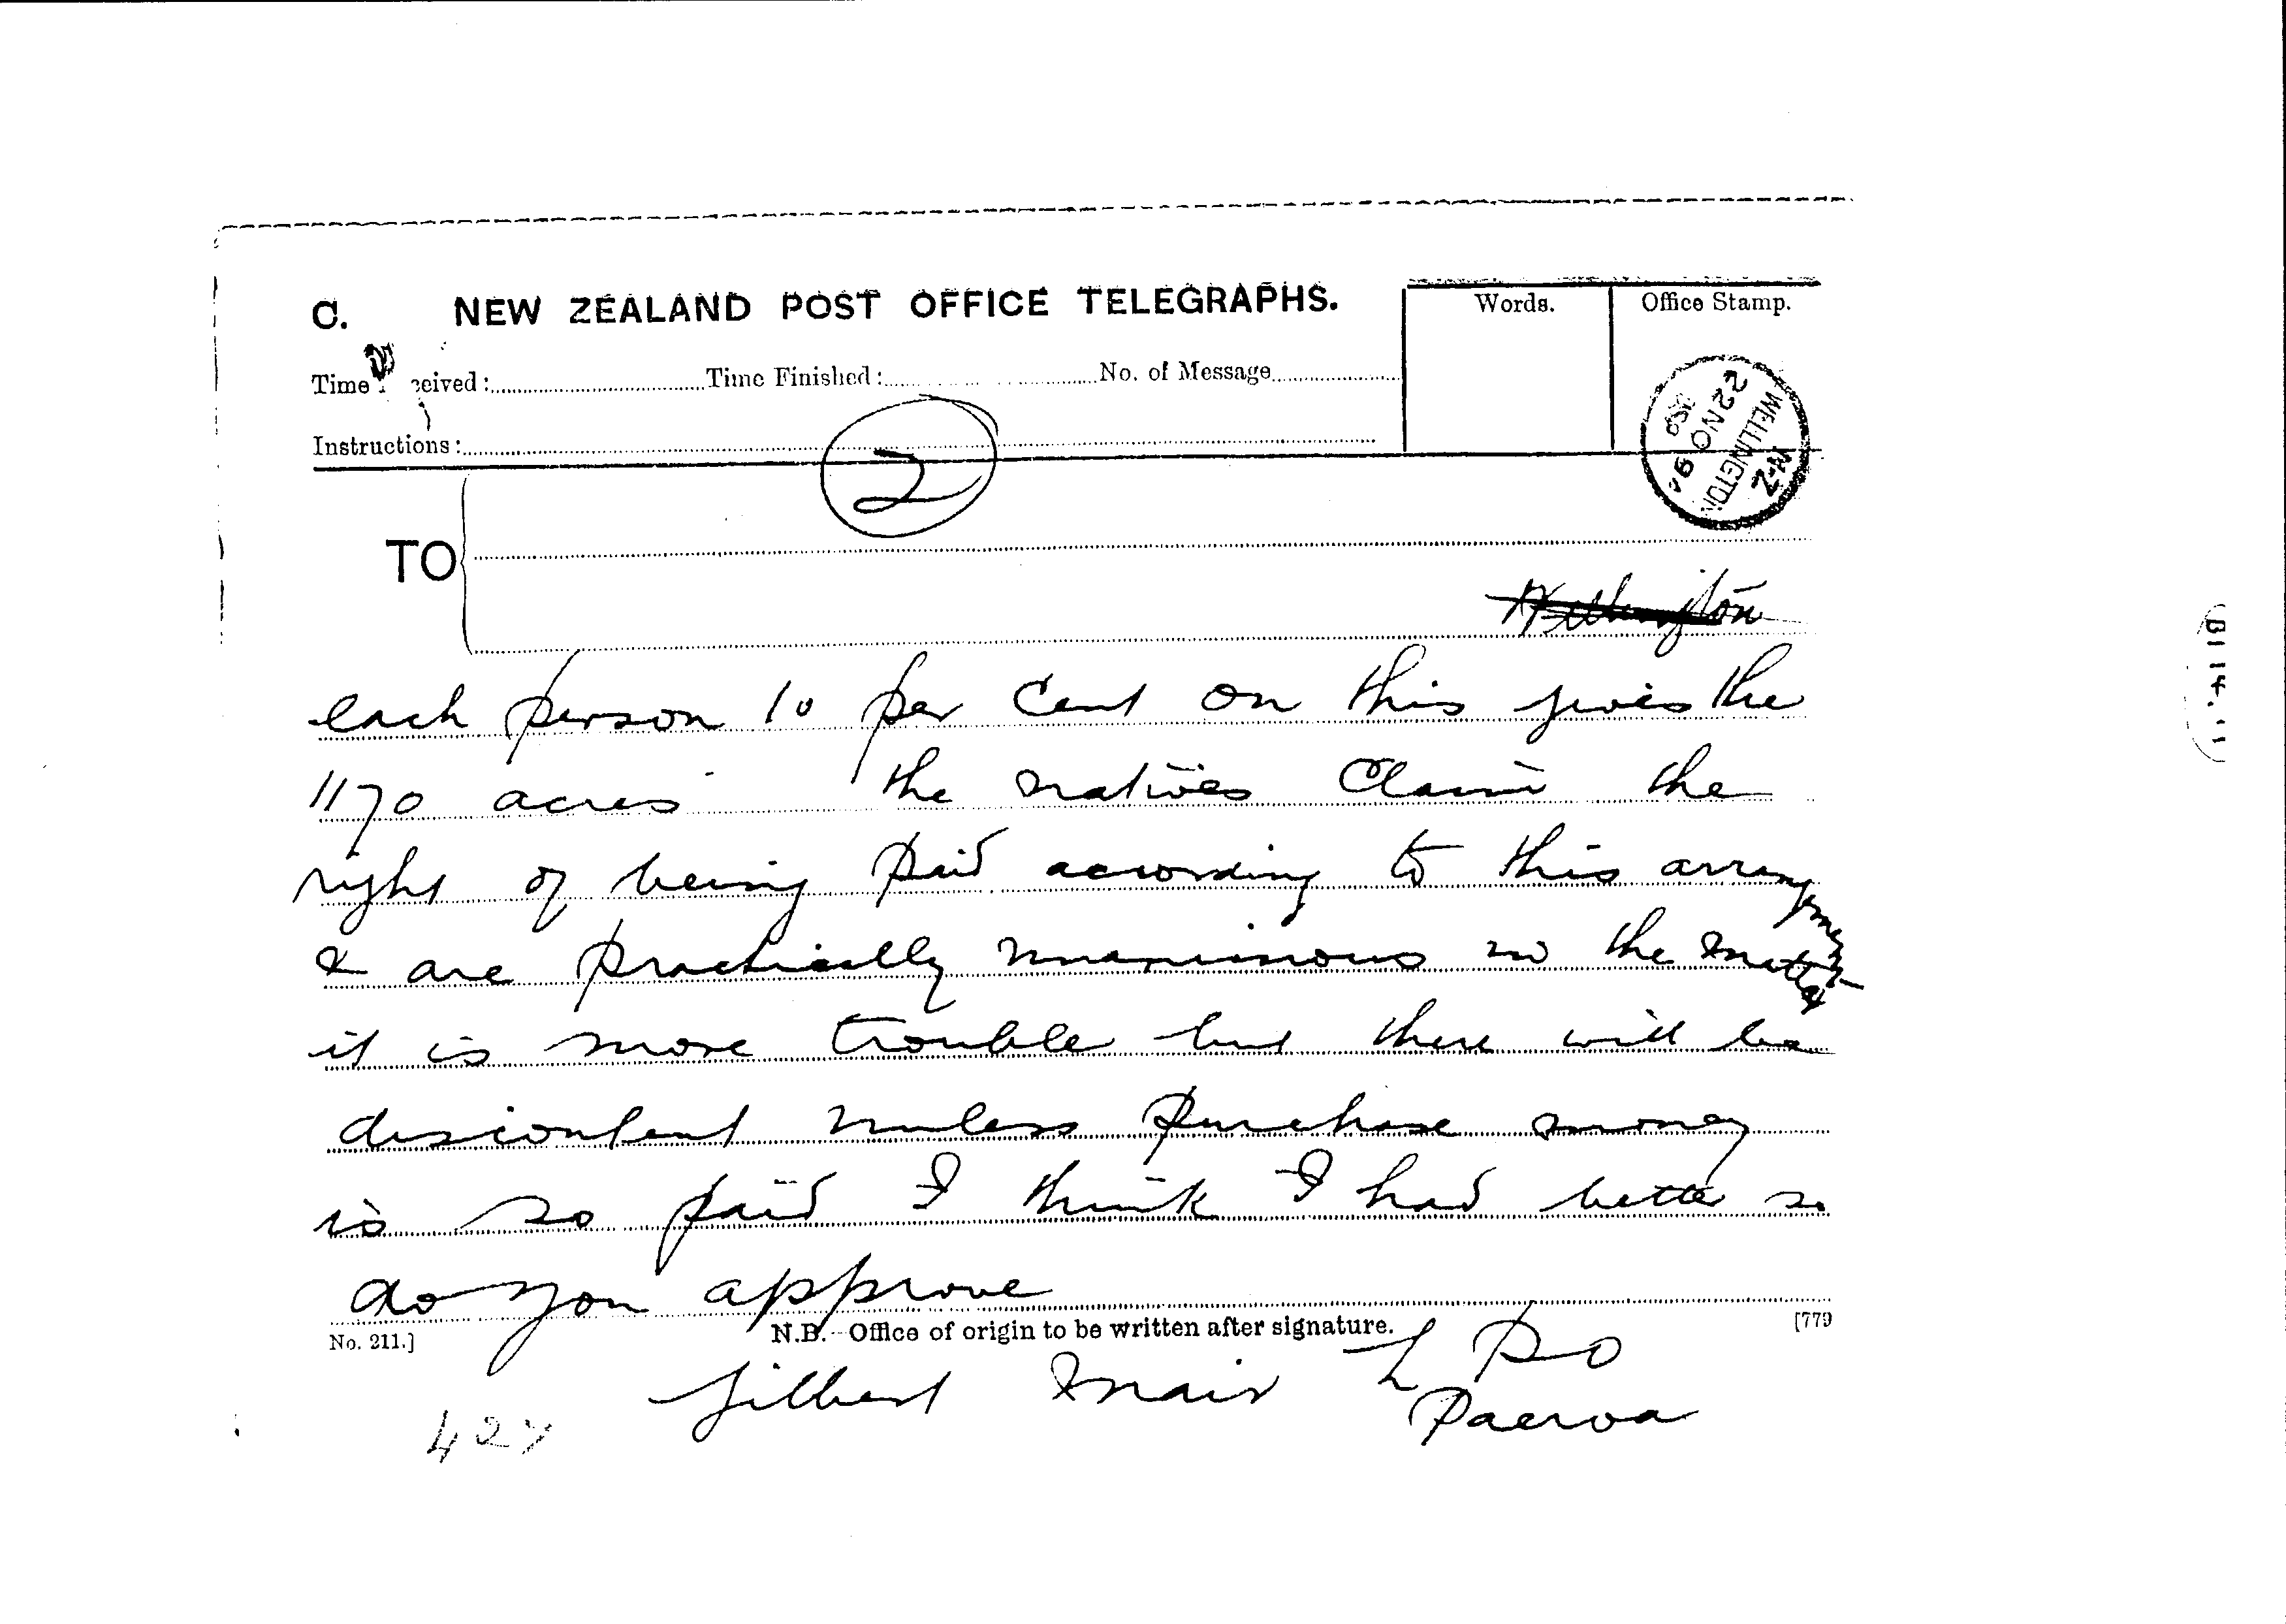 C. NEW ZEALAND POST OFFICE TELEGRAPHS.
Words.
Office Stamp.
Time ceived : Time Finished : No. of Message
Instructions :
2
WELLINGTON
N-Z
22 NO
TO
Wellington
each person 10 per cent on this gives the
1170 acres the natives claim the
right of being paid according to this arrangement
& are practically unanimous in the matter
it is more trouble but there will be
discontent unless purchase money
is so paid I think I had better so
do you approve
No. 211.]
N.B.—Office of origin to be written after signature.
[779
Gilbert Mair L P O
Paeroa
427